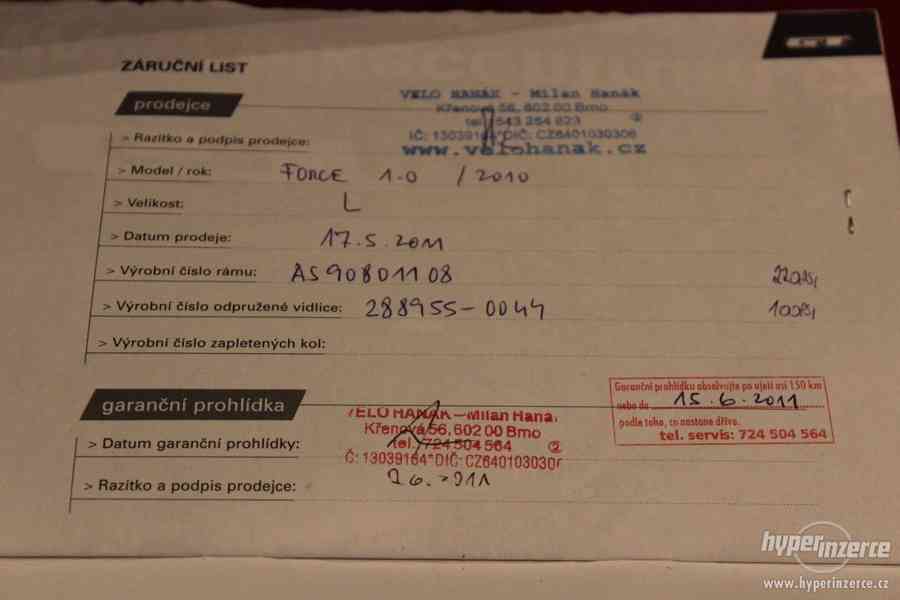 ZÁRUČNÍ LIST
prodejce
VELO HANÁK - Milan Hanák
Křenová 56, 602 00 Brno
tel. 543 254 823 ②
IČ: 13039164 DIČ: CZ6401030306
www.velohanak.cz
> Razítko a podpis prodejce:
> Model / rok: FORCE 1.0 / 2010
> Velikost: L
> Datum prodeje: 17.5.2011
> Výrobní číslo rámu: AS90801108 220PSI
> Výrobní číslo odpružené vidlice: 288955-0044 100PSI
> Výrobní číslo zapletených kol:
garanční prohlídka
Garanční prohlídku absolvujte po ujetí asi 150 km
nebo do 15.6.2011
podle toho, co nastane dříve.
tel. servis: 724 504 564
VELO HANÁK - Milan Hana
Křenová 56, 602 00 Brno
tel. 724 504 564 ②
Č: 13039164*DIČ: CZ640103030
> Datum garanční prohlídky:
> Razítko a podpis prodejce:
hyperinzerce
www.hyperinzerce.cz